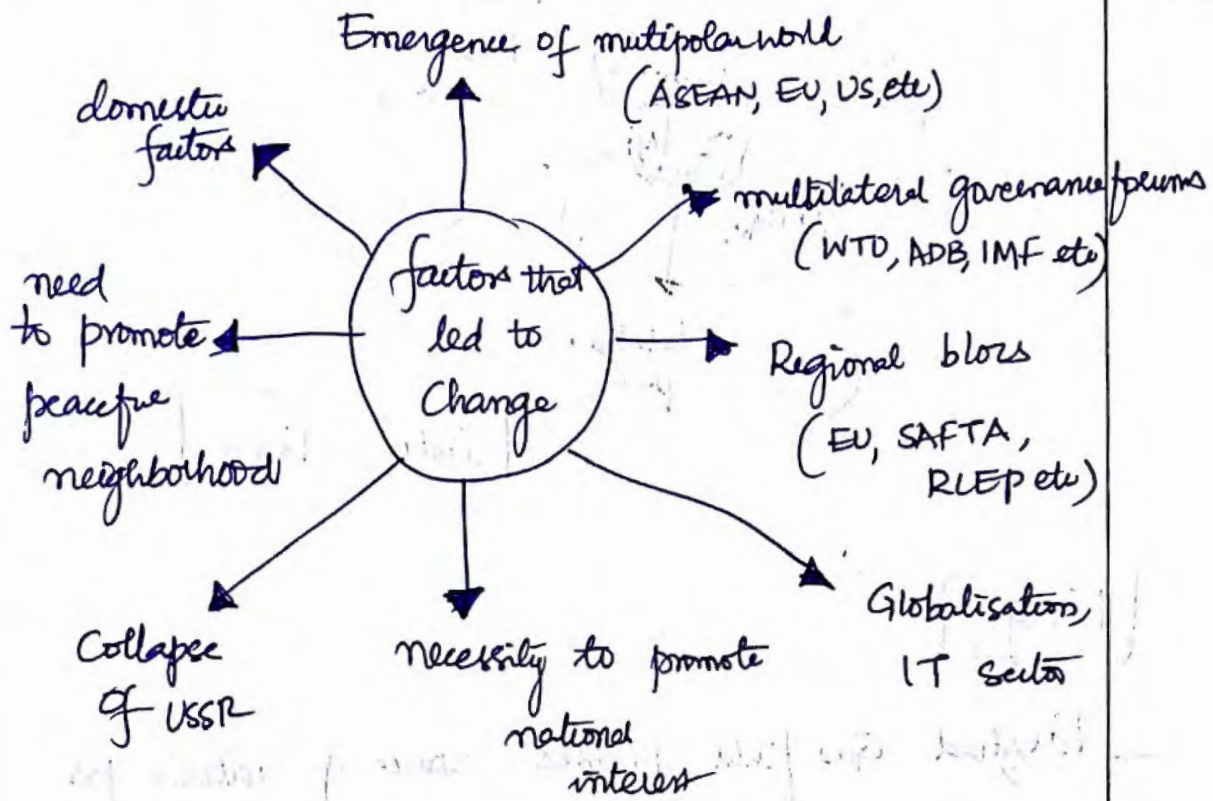 Emergence of mutipolar world
(ASEAN, EU, US, etc)
domestic
factors
multilateral governance forums
(WTO, ADB, IMF etc)
need
to promote
peaceful
neighborhood
factors that
led to
Change
Regional blocs
(EU, SAFTA,
RCEP etc)
Collapse
of USSR
necessity to promote
national
interest
Globalisation,
IT sector